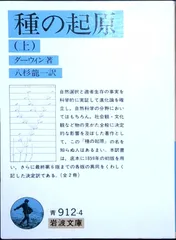 種の起原
（上）
ダーウィン著
八杉龍一訳
自然選択と適者生存の事実を
科学的に実証して進化論を確
立し、自然科学の分野におい
てはもちろん、社会観・文化
観など物の見方全般に決定
的な影響を及ぼした著作とし
て、この「種の起原」の名
を知らぬ人はあるまい。本訳
書は、底本に1859年の初版を用
い、さらに最終第6版までの各版の異同をくわしく
記した決定訳である。（全2冊）
青912-4
岩波文庫